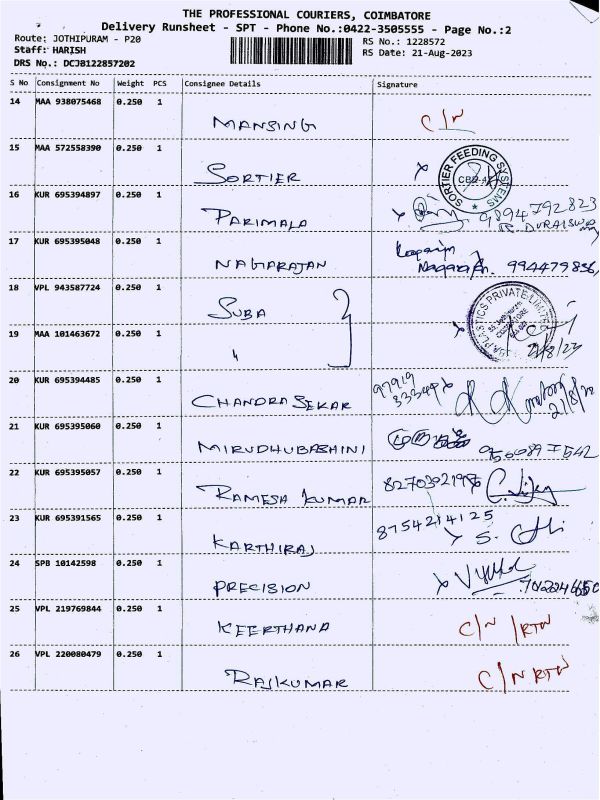 THE PROFESSIONAL COURIERS, COIMBATORE
Delivery Runsheet - SPT - Phone No.:0422-3505555 - Page No.:2
Route: JOTHIPURAM - P20
RS No.: 1228572
Staff: HARISH
RS Date: 21-Aug-2023
DRS No.: DCJB122857202
S No Consignment No Weight PCS Consignee Details Signature
14 MAA 938075468 0.250 1 MANSING C/N
15 MAA 572558390 0.250 1 SORTIER x SORTIER FEEDING SYSTEMS
16 KUR 695394897 0.250 1 PARIMALA x 9894792823
17 KUR 695395048 0.250 1 NAGARAJAN
18 VPL 943587724 0.250 1 SUBA
19 MAA 101463672 0.250 1 " 21/8/23
20 KUR 695394485 0.250 1 CHANDRASEKAR
21 KUR 695395060 0.250 1 MIRUDHUBASHINI
22 KUR 695395057 0.250 1 RAMESH KUMAR
23 KUR 695391565 0.250 1 KARTHIRAJ 8754214125
24 SPB 10142598 0.250 1 PRECISION
25 VPL 219769844 0.250 1 KEERTHANA C/N /RTN
26 VPL 220080479 0.250 1 RAJKUMAR C/N RTN